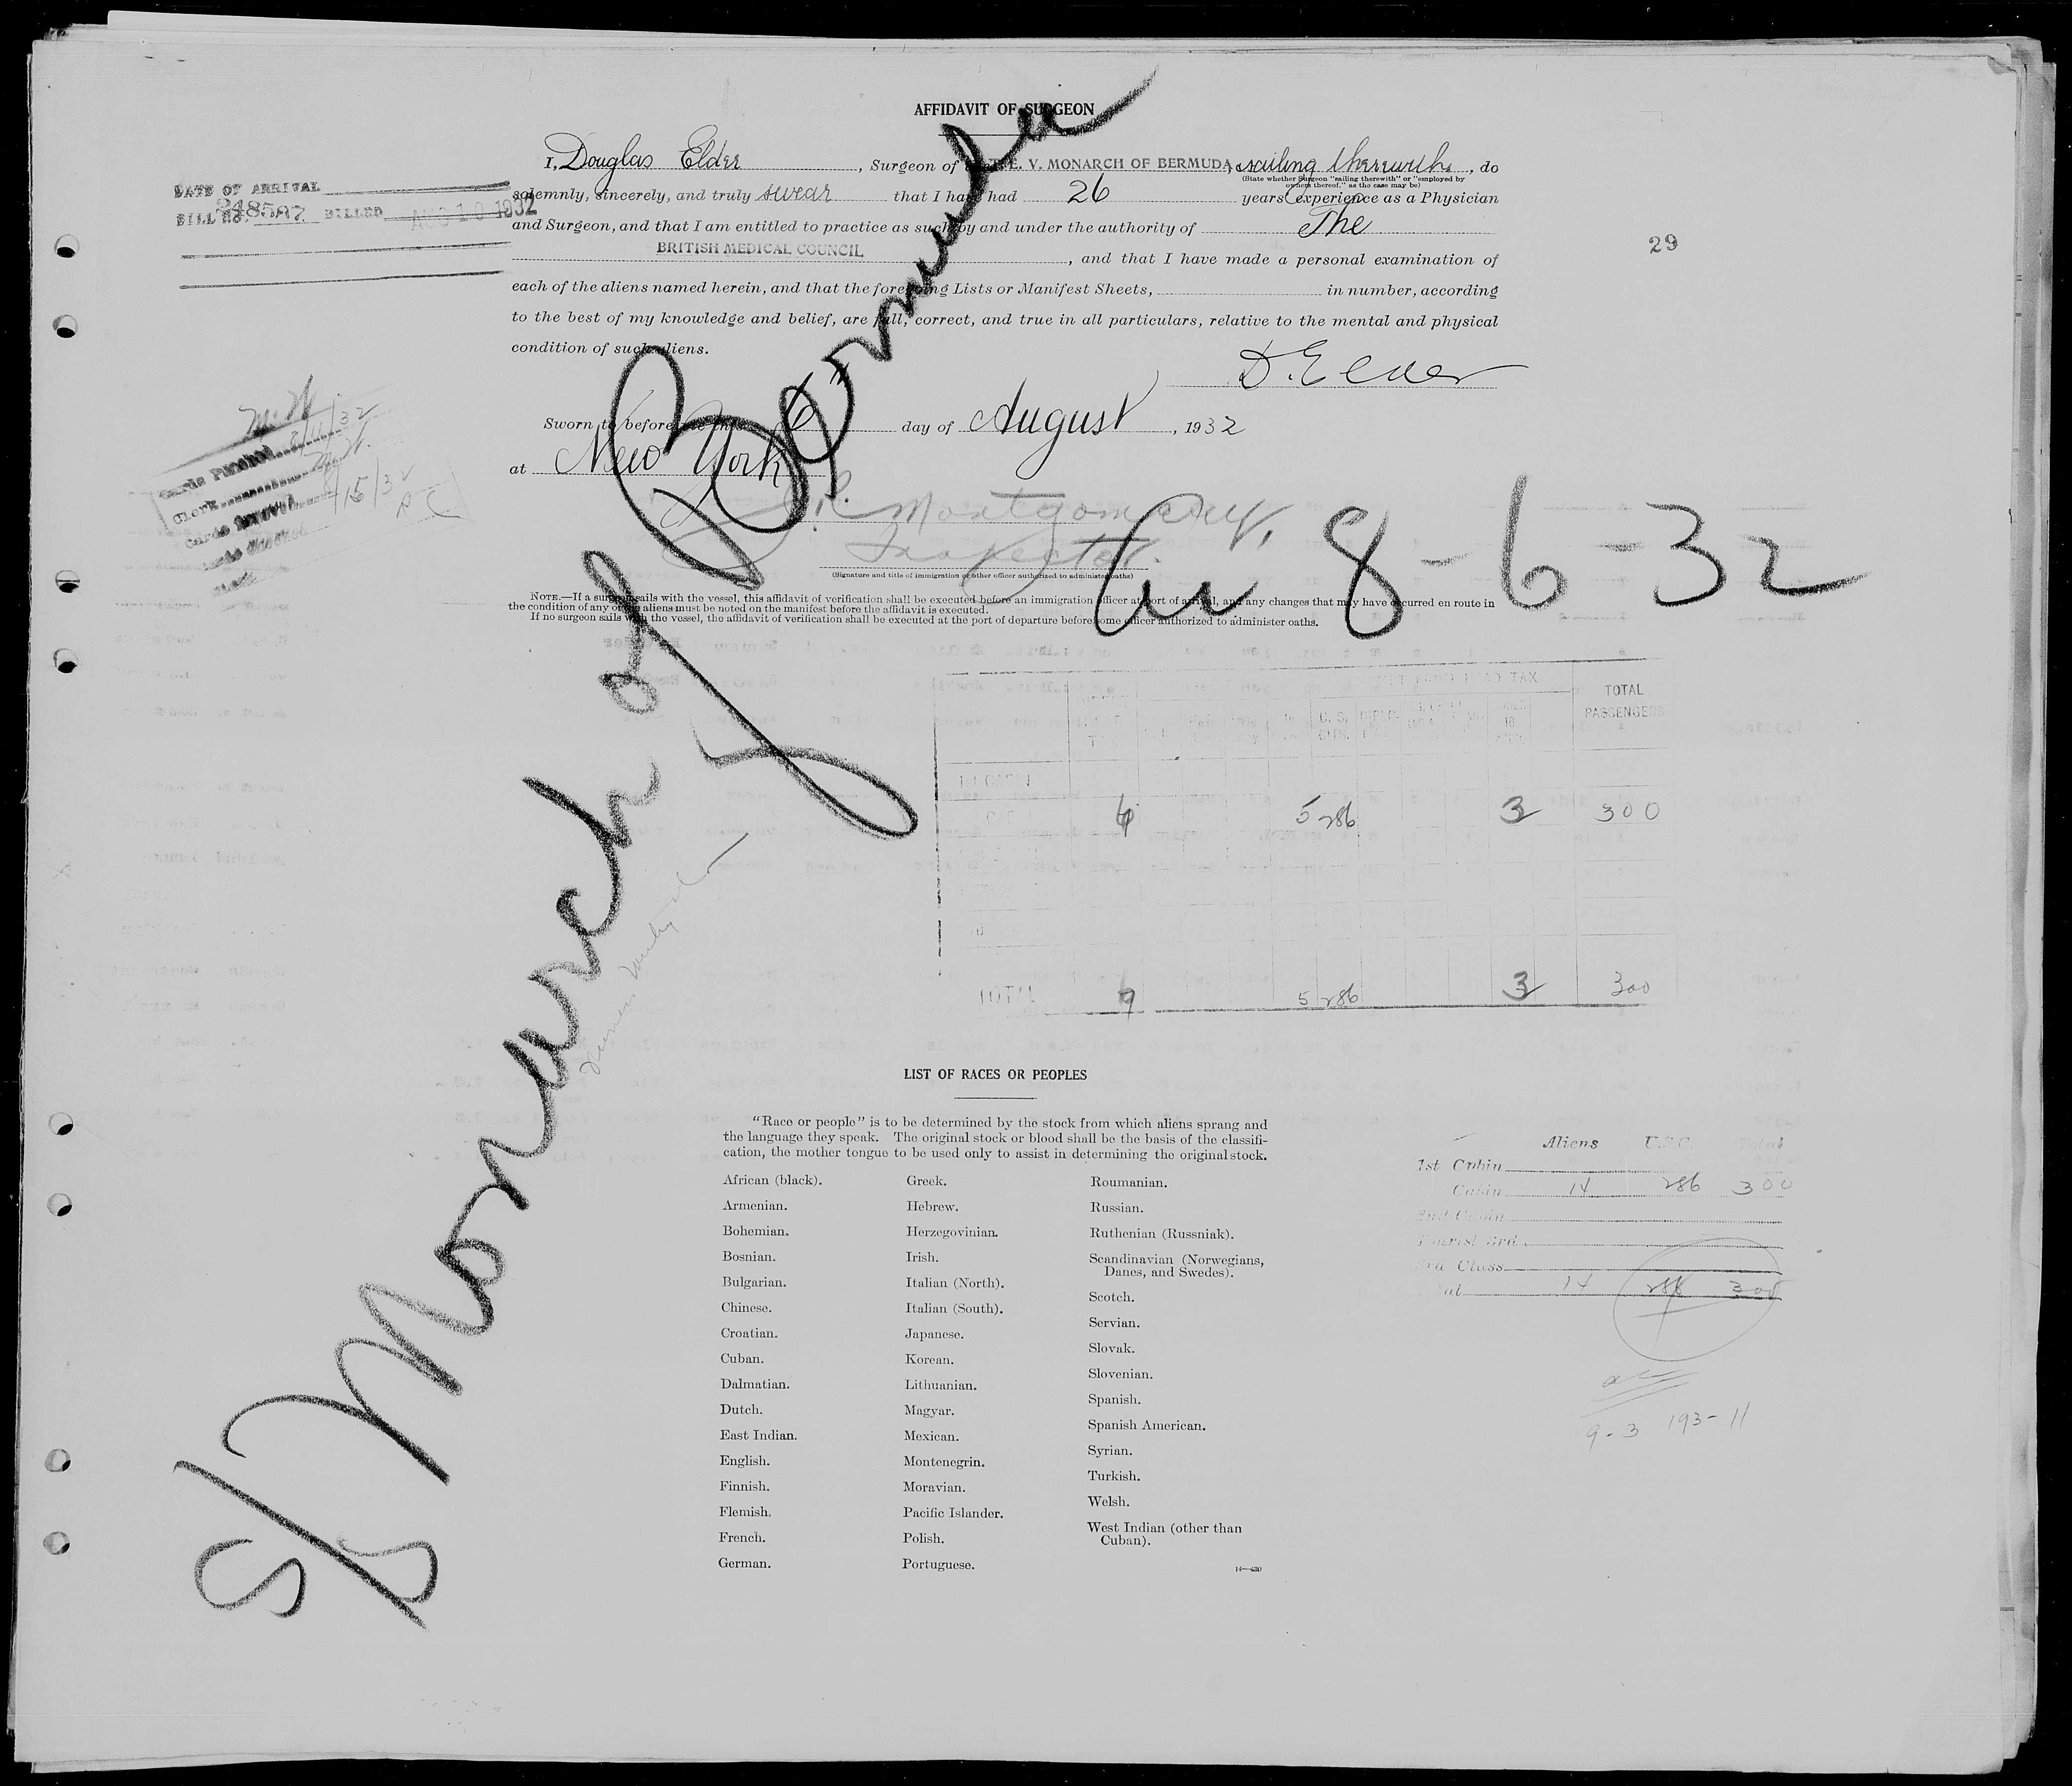 AFFIDAVIT OF SURGEON
I, Douglas Elder, Surgeon of V. MONARCH OF BERMUDA, sailing therewith, do
(State whether Surgeon "sailing therewith" or "employed by
owners thereof," as the case may be)
solemnly, sincerely, and truly swear that I have had 26 years experience as a Physician
and Surgeon, and that I am entitled to practice as such by and under the authority of The
BRITISH MEDICAL COUNCIL, and that I have made a personal examination of
each of the aliens named herein, and that the foregoing Lists or Manifest Sheets, in number, according
to the best of my knowledge and belief, are full, correct, and true in all particulars, relative to the mental and physical
condition of such aliens.
D. Elder
DATE OF ARRIVAL
BILL NO. 248587 BILLED AUG 10 1932
29
Sworn to before me this 6th day of August, 1932
at New York
Montgomery,
Inspector.
(Signature and title of immigration or other officer authorized to administer oaths)
8-6-32
NOTE.—If a surgeon sails with the vessel, this affidavit of verification shall be executed before an immigration officer at port of arrival, and any changes that may have occurred en route in
the condition of any of the aliens must be noted on the manifest before the affidavit is executed.
If no surgeon sails with the vessel, the affidavit of verification shall be executed at the port of departure before some officer authorized to administer oaths.
S/S Monarch of Bermuda
8/11/32
Clerk
8/15/32
HEAD TAX
TOTAL
PASSENGERS
U.S.
5 286 3 300
TOTAL 5 286 3 300
LIST OF RACES OR PEOPLES
"Race or people" is to be determined by the stock from which aliens sprang and
the language they speak. The original stock or blood shall be the basis of the classifi-
cation, the mother tongue to be used only to assist in determining the original stock.
African (black).
Armenian.
Bohemian.
Bosnian.
Bulgarian.
Chinese.
Croatian.
Cuban.
Dalmatian.
Dutch.
East Indian.
English.
Finnish.
Flemish.
French.
German.
Greek.
Hebrew.
Herzegovinian.
Irish.
Italian (North).
Italian (South).
Japanese.
Korean.
Lithuanian.
Magyar.
Mexican.
Montenegrin.
Moravian.
Pacific Islander.
Polish.
Portuguese.
Roumanian.
Russian.
Ruthenian (Russniak).
Scandinavian (Norwegians,
Danes, and Swedes).
Scotch.
Servian.
Slovak.
Slovenian.
Spanish.
Spanish American.
Syrian.
Turkish.
Welsh.
West Indian (other than
Cuban).
14—430
Aliens U.S.C. Total
1st Cabin
Cabin 14 286 300
2nd Cabin
3rd
3rd Class
Total 14 286 300
9-3 193-11